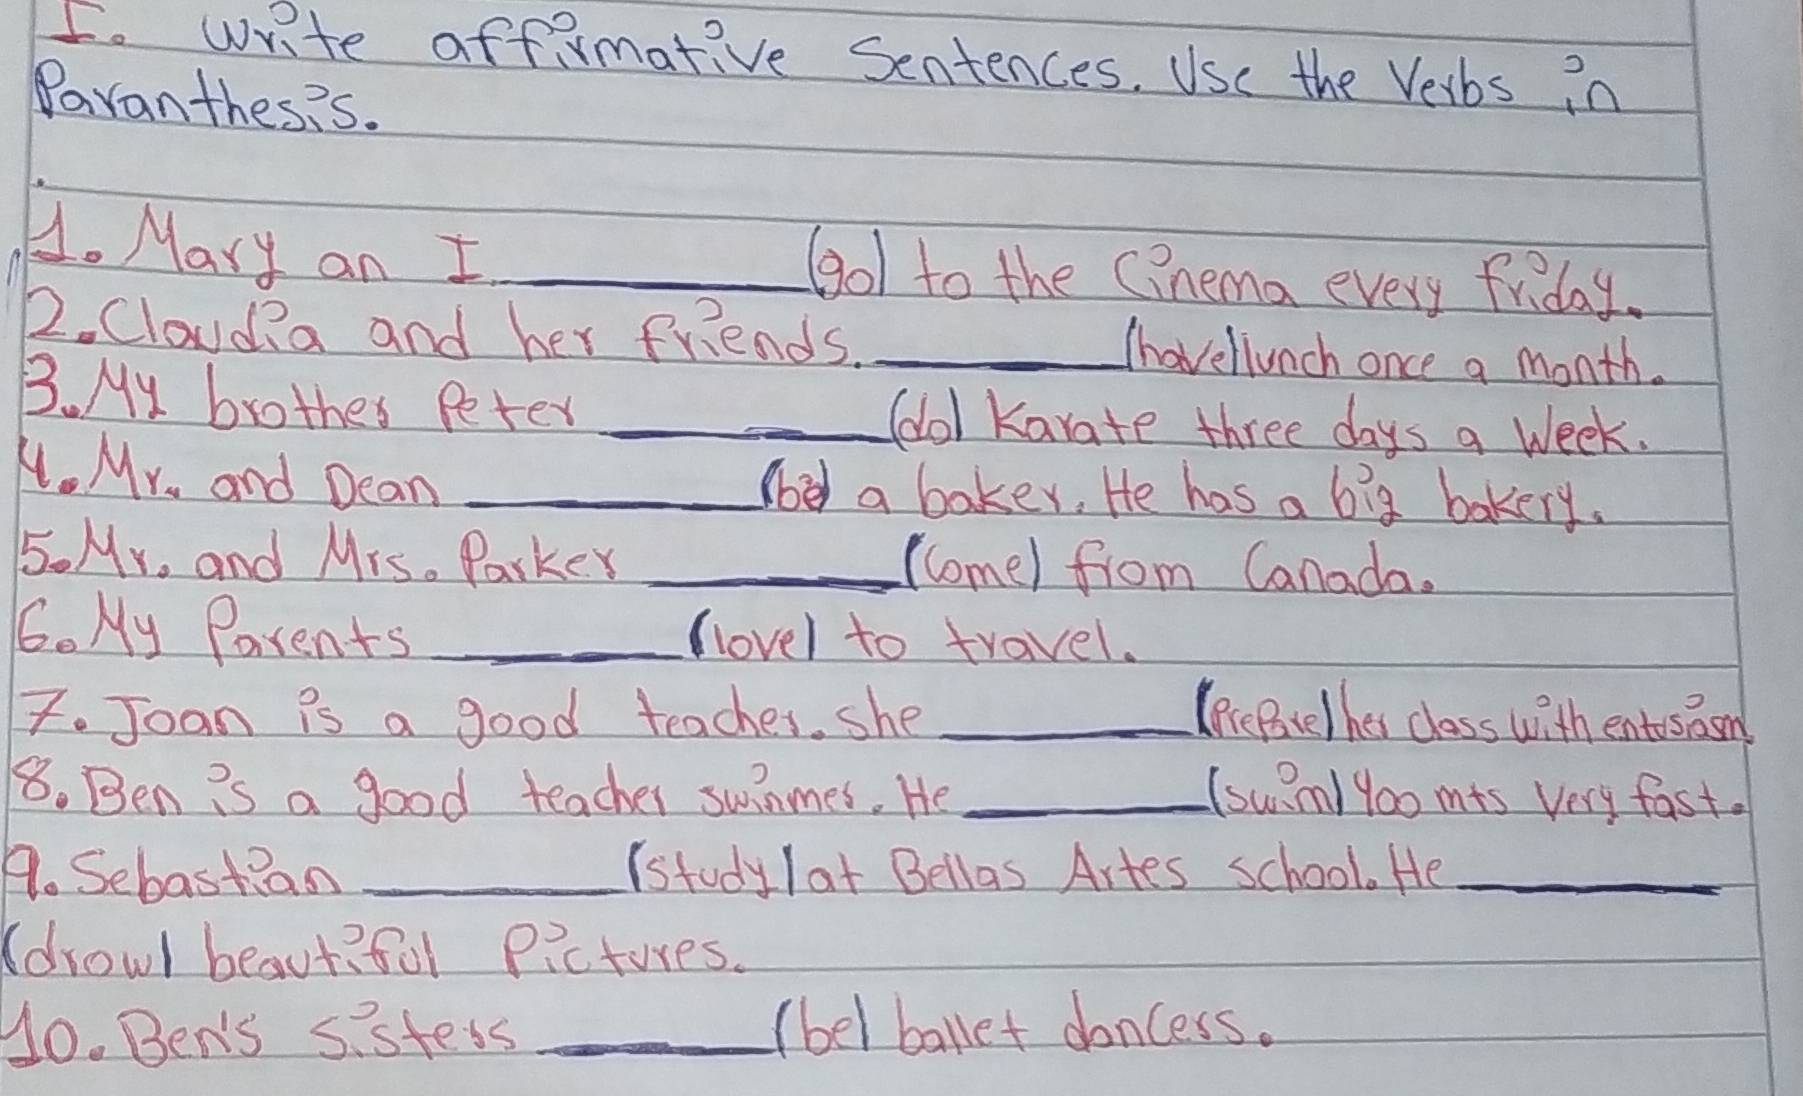 I. Write affirmative Sentences. Use the Verbs in
Paranthesis.
1. Mary an I. ________ (go) to the Cinema every friday.
2. Claudia and her friends. ________ (have) lunch once a month.
3. My brother Peter ________ (do) Karate three days a Week.
4. Mr. and Dean ________ (be) a baker. He has a big bakery.
5. Mr. and Mrs. Parker ________ (Come) from Canada.
6. My Parents ________ (love) to travel.
7. Joan is a good teacher. she ________ (Prepare) her class with entusiasm
8. Ben is a good teacher swinmer. He ________ (swim) 400 mts Very fast.
9. Sebastian ________ (study) at Bellas Artes school. He ________
(drow) beautiful Pictures.
10. Ben's sisters ________ (be) ballet dancers.